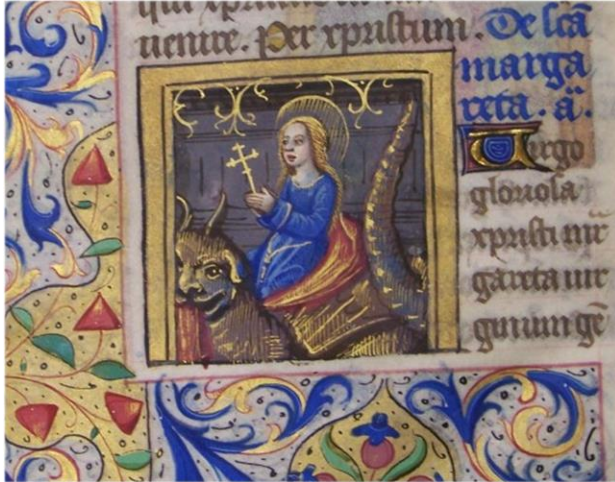 uenire. Per xpristum. De scā
marga
reta. ā.
Virgo
gloriosa
xpristi mr̄
gareta uir
ginum gē